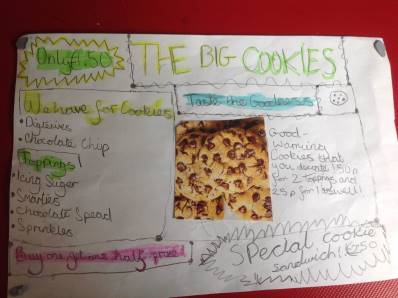 Only £1.50
THE BIG COOKIES
We have for Cookies
• Digistives
• Chocolate Chip
Toppings!
• Icing Suger
• Smarties
• Chocolate Spead
• Sprinkles
Buy one get one half price!
Taste the Goodness
Good-
Warning
Cookies that
you decorate! 50p
for 2 toppings and
25p for 1 aswell!
SPecial cookie
sandwich! £2.50